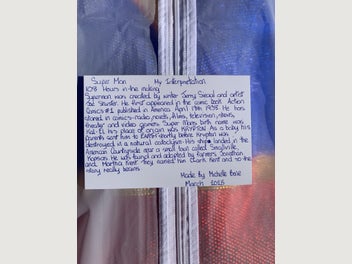 Super Man My Interpretation
1038 Hours in the making
Superman was created by writer Jerry Siegal and artist
Joe Shuster. He first appeared in the comic book Action
Comics #1 published in America April 18th 1938. He has
starred in comics-radio, novels, films, television, shows,
theater and video games. Super Mans birth name was
Kal-El his place of origin was KRYPTON. As a baby his
parents sent him to EARTH shortly before Krypton was
destroyed in a natural cataclysm. His ship landed in the
American Countryside near a small town called Smallville,
Kansas. He was found and adopted by farmers Jonathan
and Martha Kent they named him Clark Kent and so the
story really begins.
Made By Michelle
March 2025